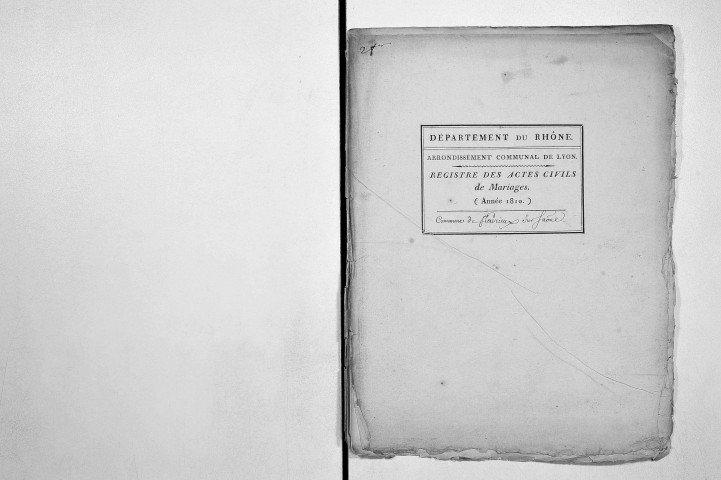 25
DÉPARTEMENT DU RHÔNE.
ARRONDISSEMENT COMMUNAL DE LYON.
REGISTRE DES ACTES CIVILS
de Mariages.
( Année 1810. )
Commune de fleurieux sur Saône